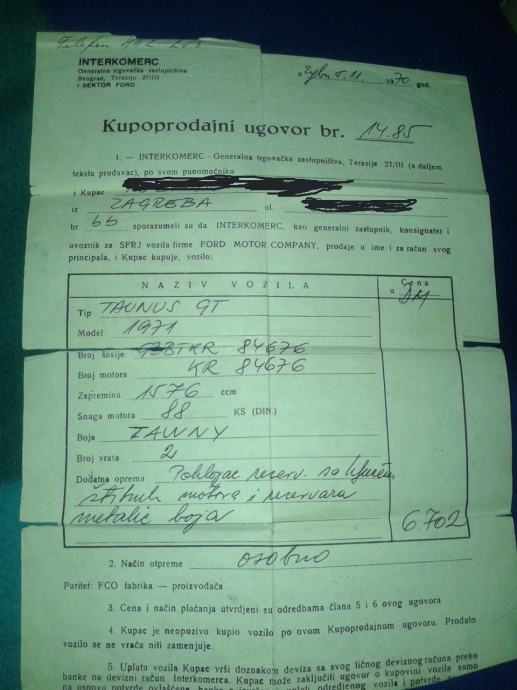 Telefon 112-
INTERKOMERC
Generalna trgovačka zastupništva
Beograd, Terazije 27/III
I SEKTOR FORD
11. 1970 god.
Kupoprodajni ugovor br. 1485
1. — INTERKOMERC - Generalna trgovačka zastupništva, Terazije 27/III (u daljem
tekstu prodavac), po svom punomoćniku
i Kupac
iz ZAGREBA ul.
br. bb sporazumeli su da INTERKOMERC, kao generalni zastupnik, konsignater i
uvoznik za SFRJ vozila firme FORD MOTOR COMPANY, prodaje u ime i za račun svog
principala, i Kupac kupuje, vozilo:
NAZIV VOZILA Cena
u DM
Tip TAUNUS GT
Model 1971
Broj šasije KR 84676
Broj motora KR 84676
Zapremina 1576 ccm
Snaga motora 88 KS (DIN.)
Boja TAWNY
Broj vrata 2
Dodatna oprema Poklopac rezerv. sa ključem,
motora i rezervara
metalic boja 6.702
2. Način otpreme osobno
Paritet: FCO fabrika — proizvođača.
3. Cena i način plaćanja utvrdjeni su odredbama člana 5 i 6 ovog ugovora
4. Kupac je neopozivo kupio vozilo po ovom Kupoprodajnom ugovoru. Prodato
vozilo se ne vrača niti zamenjuje.
5. Uplatu vozila Kupac vrši doznakom deviza sa svog ličnog deviznog računa preko
banke na devizni račun Interkomerca. Kupac može zaključiti ugovor o kupovini vozila samo
na osnovu potvrde ovlašćene određenog vozila i potvrde